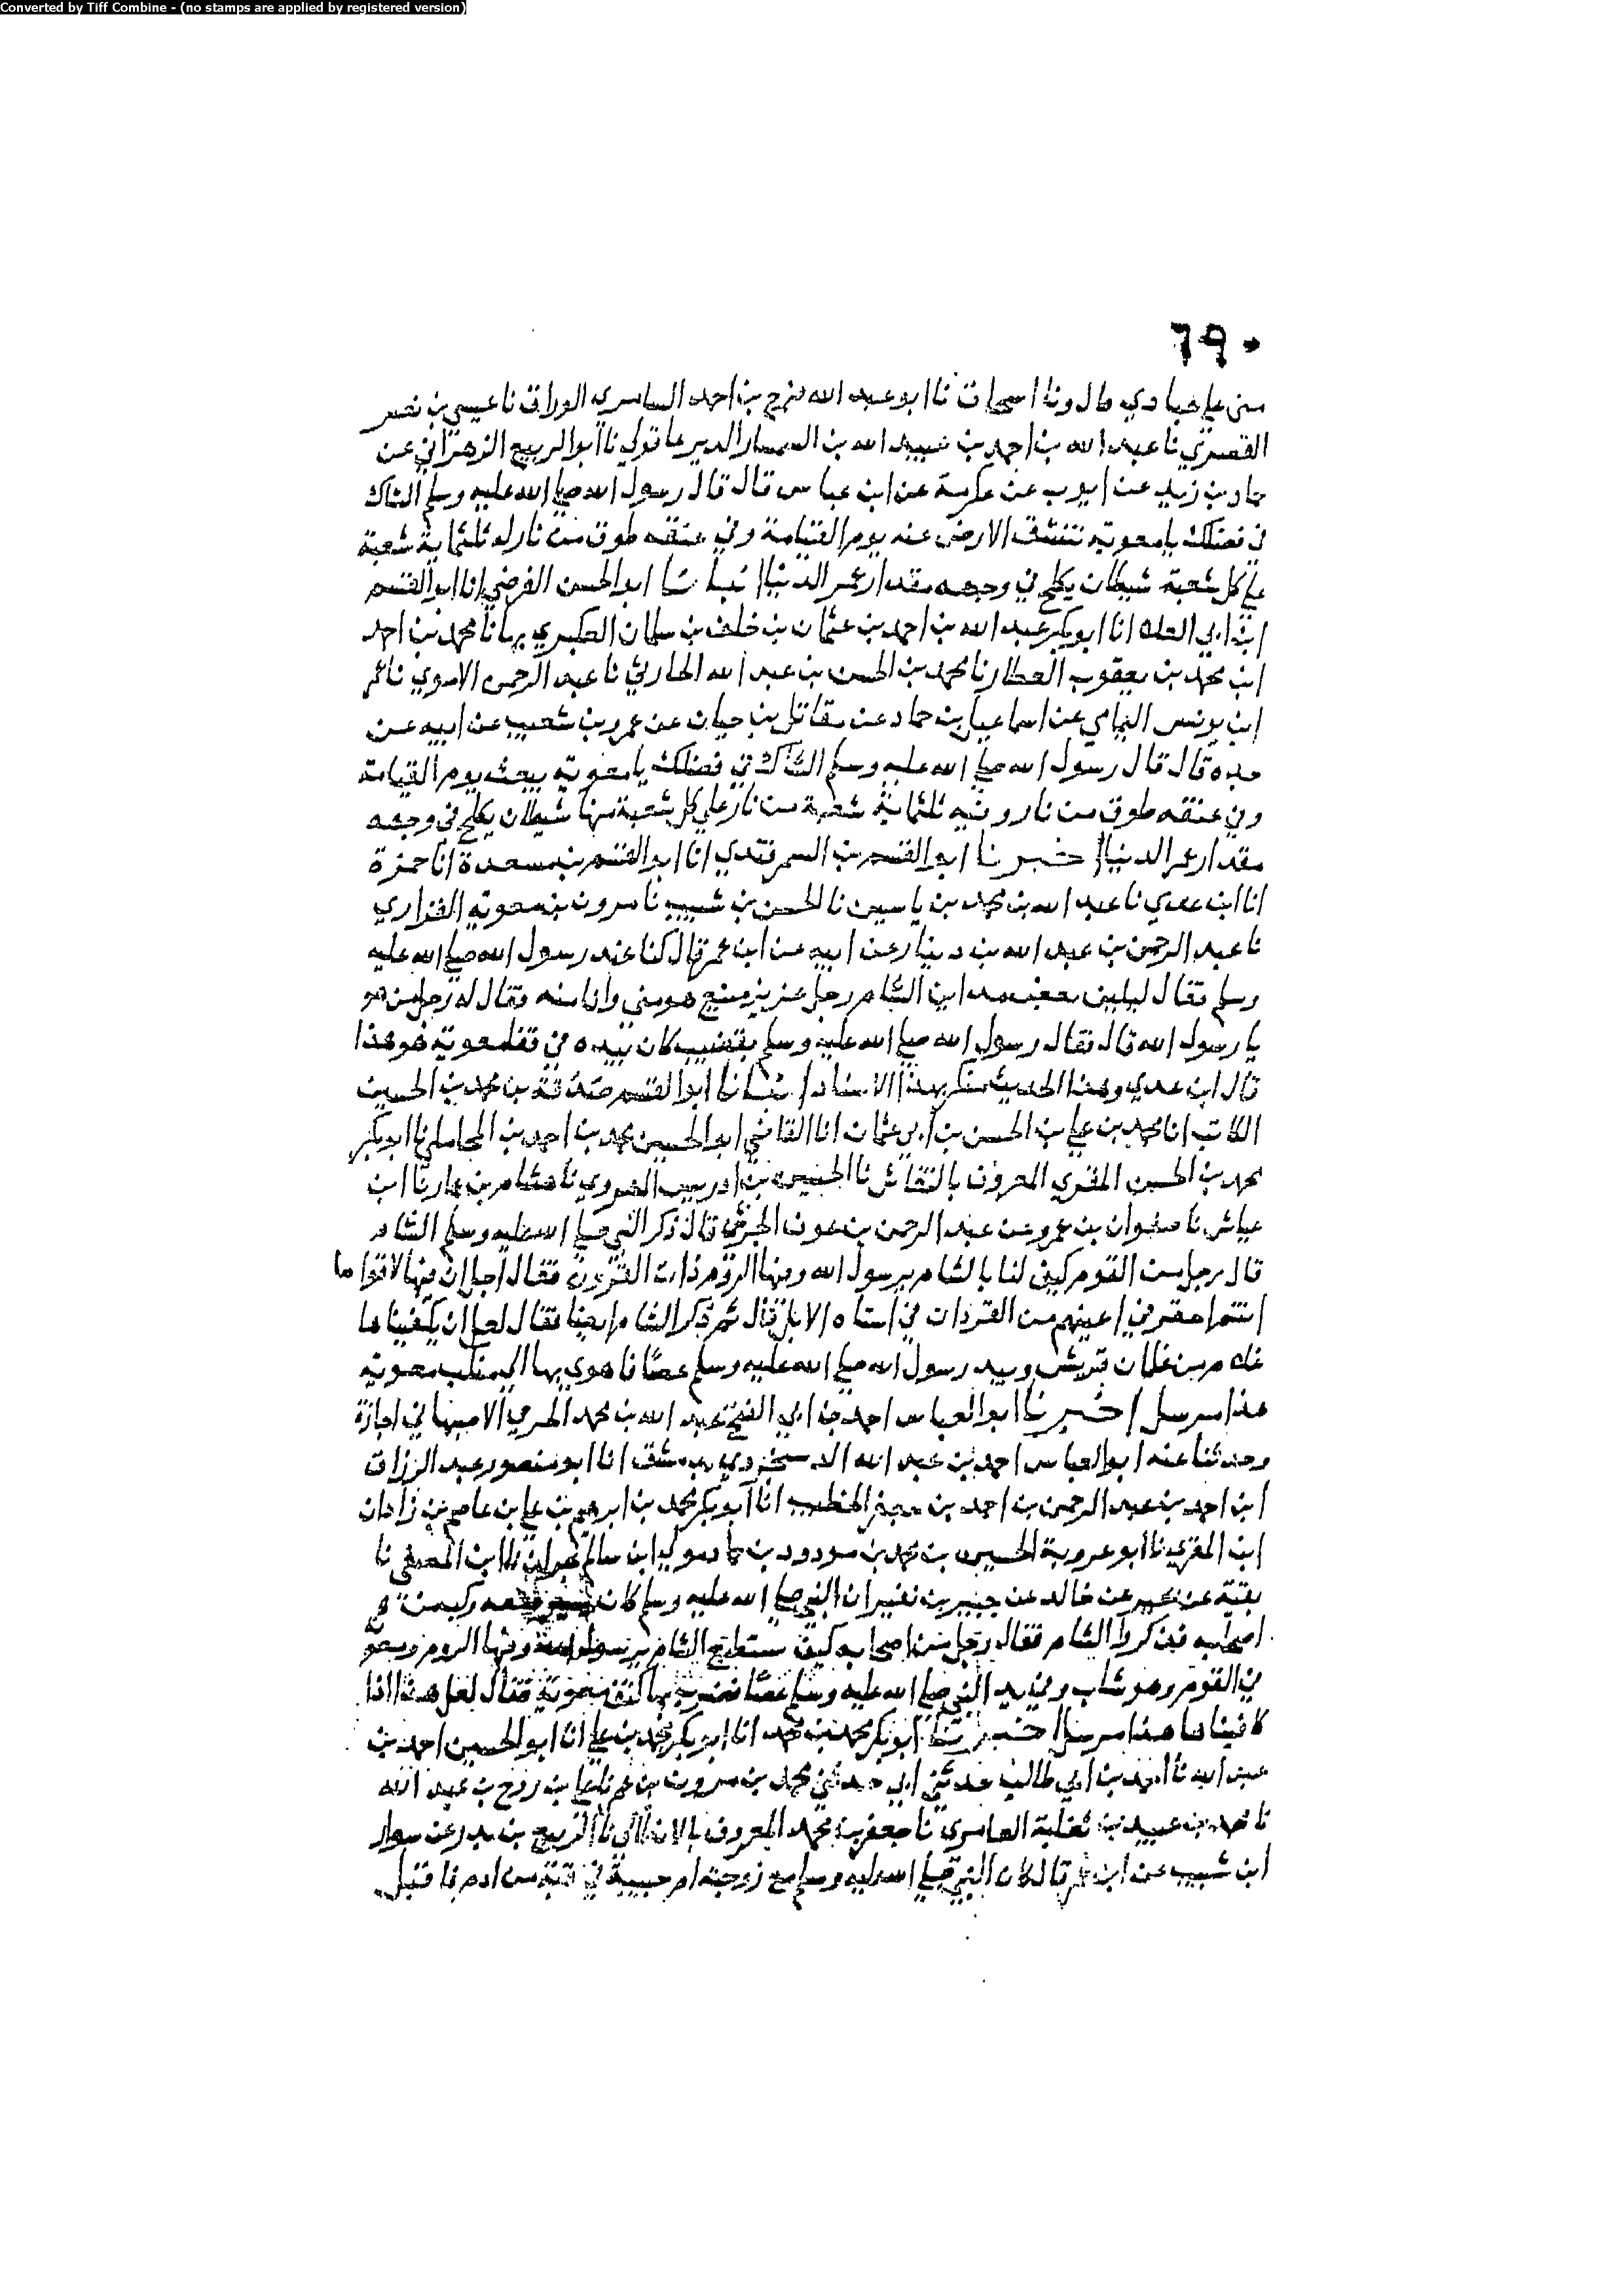 Converted by Tiff Combine - (no stamps are applied by registered version)
٦٩٠
مني علي عبادي قال ونا اسحاق نا ابو عبد الله فرج بن احمد السامري الوراق نا عيسى بن نصر
القصري نا عبد الله بن احمد بن عبيد الله بن الديرعاقولي نا ابو الربيع الزهراني عن
حماد بن زيد عن ايوب عن عكرمة عن ابن عباس قال قال رسول الله صلى الله عليه وسلم الشاك
في فضلك يا معوية تنشق الارض عنه يوم القيامة وفي عنقه طوق من نار له ثلثماية شعبة
على كل شعبة شيطان يكلح في وجهه مقدار عمر الدنيا انبانا ابو الحسن الفرضي انا ابو القسم
ابن ابي العلاء انا ابو بكر عبد الله بن احمد بن عثمان بن خلف بن سلمان العكبري بها نا محمد بن احمد
ابن محمد بن يعقوب العطار نا محمد بن الحسن بن عبد الله الحارثي نا عبد الرحمن الاموي نا عمر
ابن يونس اليمامي عن اسماعيل بن حماد عن مقاتل بن حيان عن عمرو بن شعيب عن ابيه عن
جده قال قال رسول الله صلى الله عليه وسلم الشاك في فضلك يا معوية يبعث يوم القيامة
وفي عنقه طوق من نار وفيه ثلثماية شعبة من نار على كل شعبة منها شيطان يكلح في وجهه
مقدار عمر الدنيا اخبرنا ابو القسم بن السمرقندي انا ابو القسم بن مسعدة انا حمزة
انا ابن عدي نا عبد الله بن محمد بن ياسين نا الحسن بن شبيب نا مروان بن معوية الفزاري
نا عبد الرحمن بن عبد الله بن دينار عن ابيه عن ابن عمر قال كنا عند رسول الله صلى الله عليه
وسلم فقال ليلين بعض مداين الشام رجل عزيز منيع هو مني وانا منه فقال له رجل من هو
يا رسول الله قال فقال رسول الله صلى الله عليه وسلم بقضيب كان بيده في قفا معوية هو هذا
قال ابن عدي وهذا الحديث منكر بهذا الاسناد انبانا ابو القسم صدقة بن محمد بن الحسين
الكاتب انا محمد بن علي بن الحسن بن ابي عثمان انا القاضي ابو الحسين محمد بن احمد بن المحاملي نا ابو بكر
محمد بن الحسن المقري المعروف بالنقاش نا الحسين بن ادريس الهروي نا هشام بن عمار نا ابن
عياش نا صفوان بن عمرو عن عبد الرحمن بن عوف الجرشي قال ذكر النبي صلى الله عليه وسلم الشام
قال رجل من القوم كيف لنا بالشام يرسول الله وفيها الروم ذات القرون فقال اجل ان فيها لاقواما
انتم احقر في اعينهم من القردان في استاه الابل قال ثم ذكر الشام ايضا فقال لعل ان يكفيناها
غلام من غلمان قريش وبيد رسول الله صلى الله عليه وسلم عصا فاهوى بها الى منكب معوية
هذا مرسل اخبرنا ابو العباس احمد بن ابي الفتح عبد الله بن محمد الخرقي الاصبهاني اجازة
وحدثنا عنه ابو العباس احمد بن عبد الله بدمشق انا ابو منصور عبد الرزاق
ابن احمد بن عبد الرحمن بن احمد بن جعفر الخطيب انا ابو بكر محمد بن ابرهيم بن علي بن عاصم بن زاذان
ابن المقري نا ابو عروبة الحسين بن محمد بن مودود بن حماد مولى ابن سالم نا ابن المصفى نا
بقية عن بحير عن خالد عن جبير بن نفير ان النبي صلى الله عليه وسلم كان يسير ومعه ركب من
اصحابه فذكروا الشام فقال رجل من اصحابه كيف نستطيع الشام يرسول الله وفيها الروم ومعوية
في القوم وهو شاب وفي يد النبي صلى الله عليه وسلم عصا فضرب بها كتف معوية فقال لعل هذا ان
كافيناها هذا مرسل اخبرنا ابو بكر محمد بن محمد انا ابو بكر محمد بن علي انا ابو الحسين احمد بن
عبد الله نا احمد بن ابي طالب حدثني ابي حدثني محمد بن مروان بن عمر نا علي بن روح بن عبد الله
نا محمد بن عبيد بن ثعلبة العامري نا جعفر بن محمد المعروف نا الربيع بن بدر عن سوار
ابن شبيب عن ابن عمر قال كان النبي صلى الله عليه وسلم مع زوجته ام حبيبة في قبة من ادم فاقبل